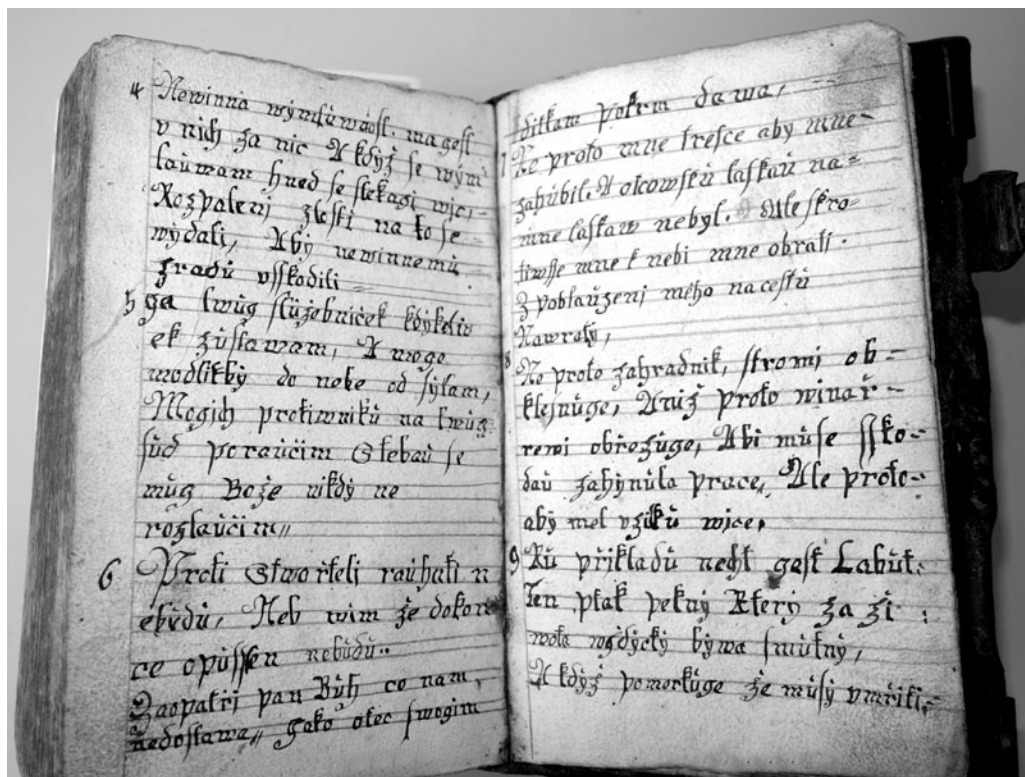 4 Newinna wýmlůwnost. ma gest
v nich za nic A když se wým
lauwam hned se stekagi wice
Rozpaleni zlosti na to se
wýdali, Abý newinnemů
zradů vsskodili
5 ga twůg slůžebniček kdýkoliw
ek zůstawam, A moge
modlitbý do nebe od sýlam,
Mogich protiwniků na twůg
sůd poraučim S tebaů se
můg Bože nikdý ne
rozlaučim
6 Proti Stworiteli raůhati n
ebůdů, Neb wim že dokon
ce opůssten nebůdů
Zaopatři pan Bůh co nam,
nedostawa, gako otec swogim
ditkam pokrm dawa,
7 Ne proto mne tresce aby mne
zahůbil. A otcowsků laskaů na
mne laskaw nebyl. Ale skro
tiwsse mne k nebi mne obrati.
Z poblaůzeni mého na cestů
Nawratý,
8 Ne proto zahradnik, stromi ob
klesnůge, Aniž proto winař
rewi obřezůge, Abi můse sskо
daů zahýnůla prace, Ale proto
aby mel vžitků wice,
9 Ků přikladů necht gest Labůt:
Ten ptak pekný Který za ži
wota wždýcký býwa smůtný,
A když pomerkůge že můsý vmřiti,